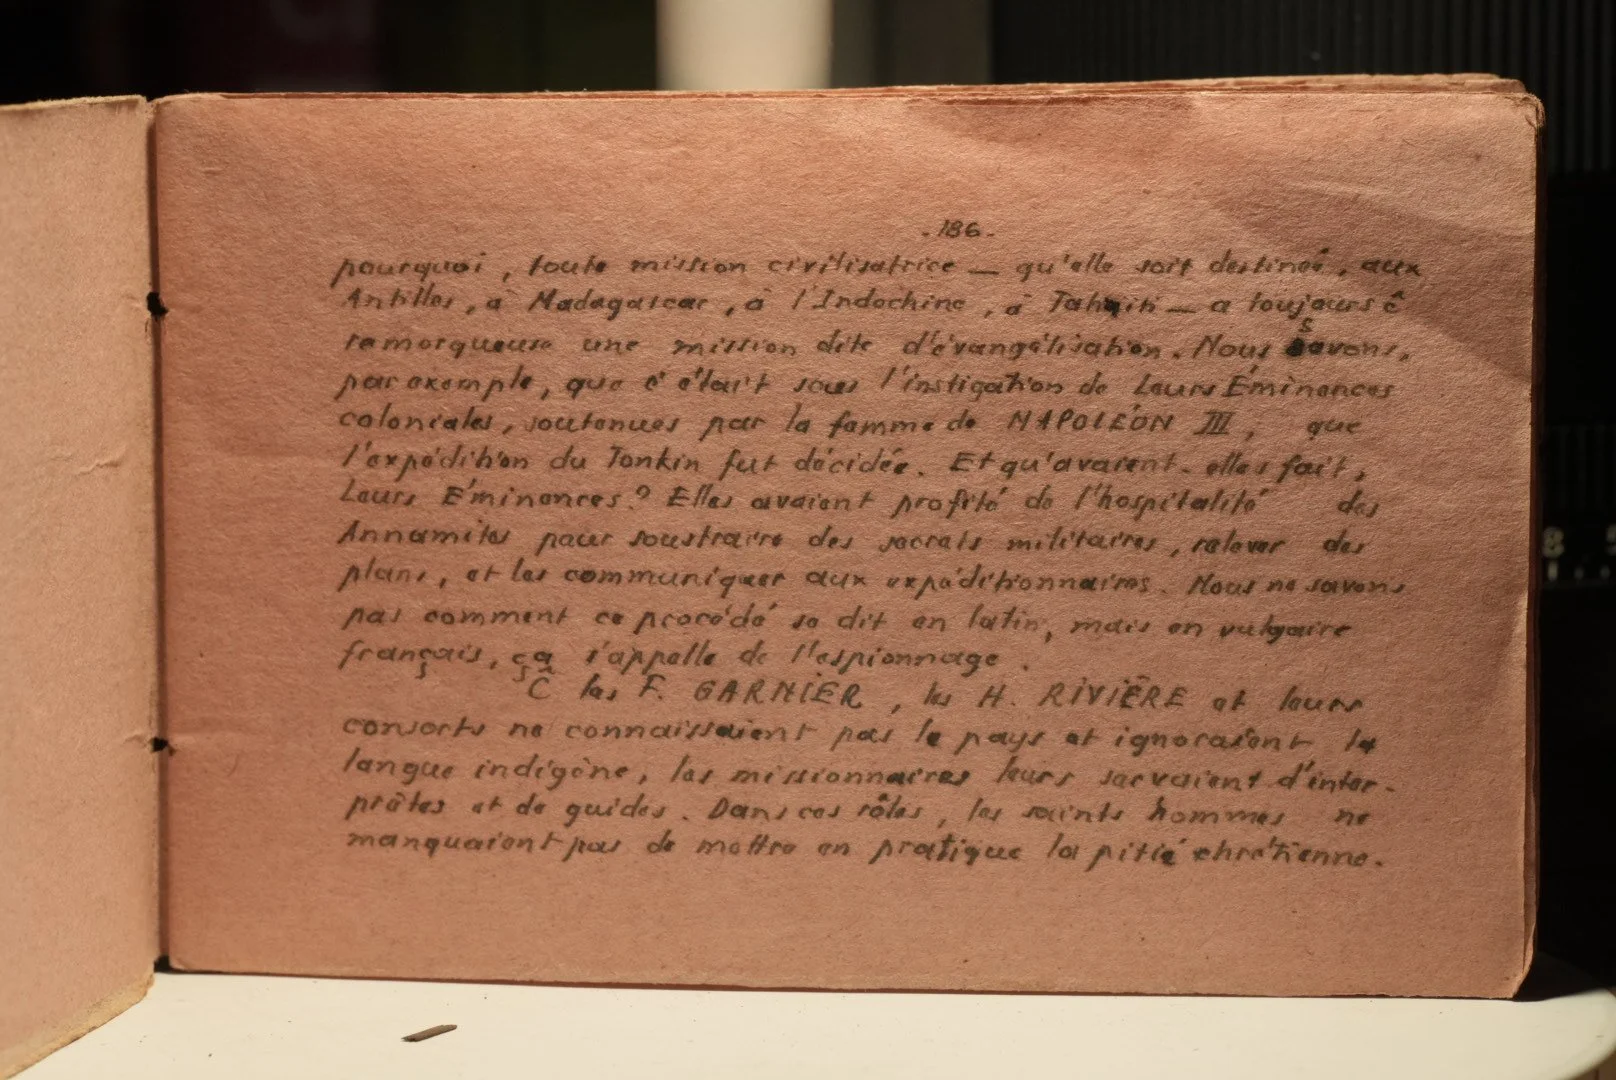 -186-
pourquoi, toute mission civilisatrice — qu'elle soit destinée, aux
Antilles, à Madagascar, à l'Indochine, à Tahiti — a toujours ê
remorqueuse une mission dite d'évangélisation. Nous savons,
par exemple, que c'était sous l'instigation de Leurs Éminences
coloniales, soutenues par la femme de NAPOLÉON III, que
l'expédition du Tonkin fut décidée. Et qu'avaient-elles fait,
Leurs Éminences? Elles avaient profité de l'hospitalité des
Annamites pour soustraire des secrets militaires, relever des
plans, et les communiquer aux expéditionnaires. Nous ne savons
pas comment ce procédé se dit en latin, mais en vulgaire
français, ça s'appelle de l'espionnage.
Ĉ les F. GARNIER, les H. RIVIÈRE et leurs
consorts ne connaissaient pas le pays et ignoraient la
langue indigène, les missionnaires leurs servaient d'inter-
prètes et de guides. Dans ces rôles, les saints hommes ne
manquaient pas de mettre en pratique la pitié chrétienne.